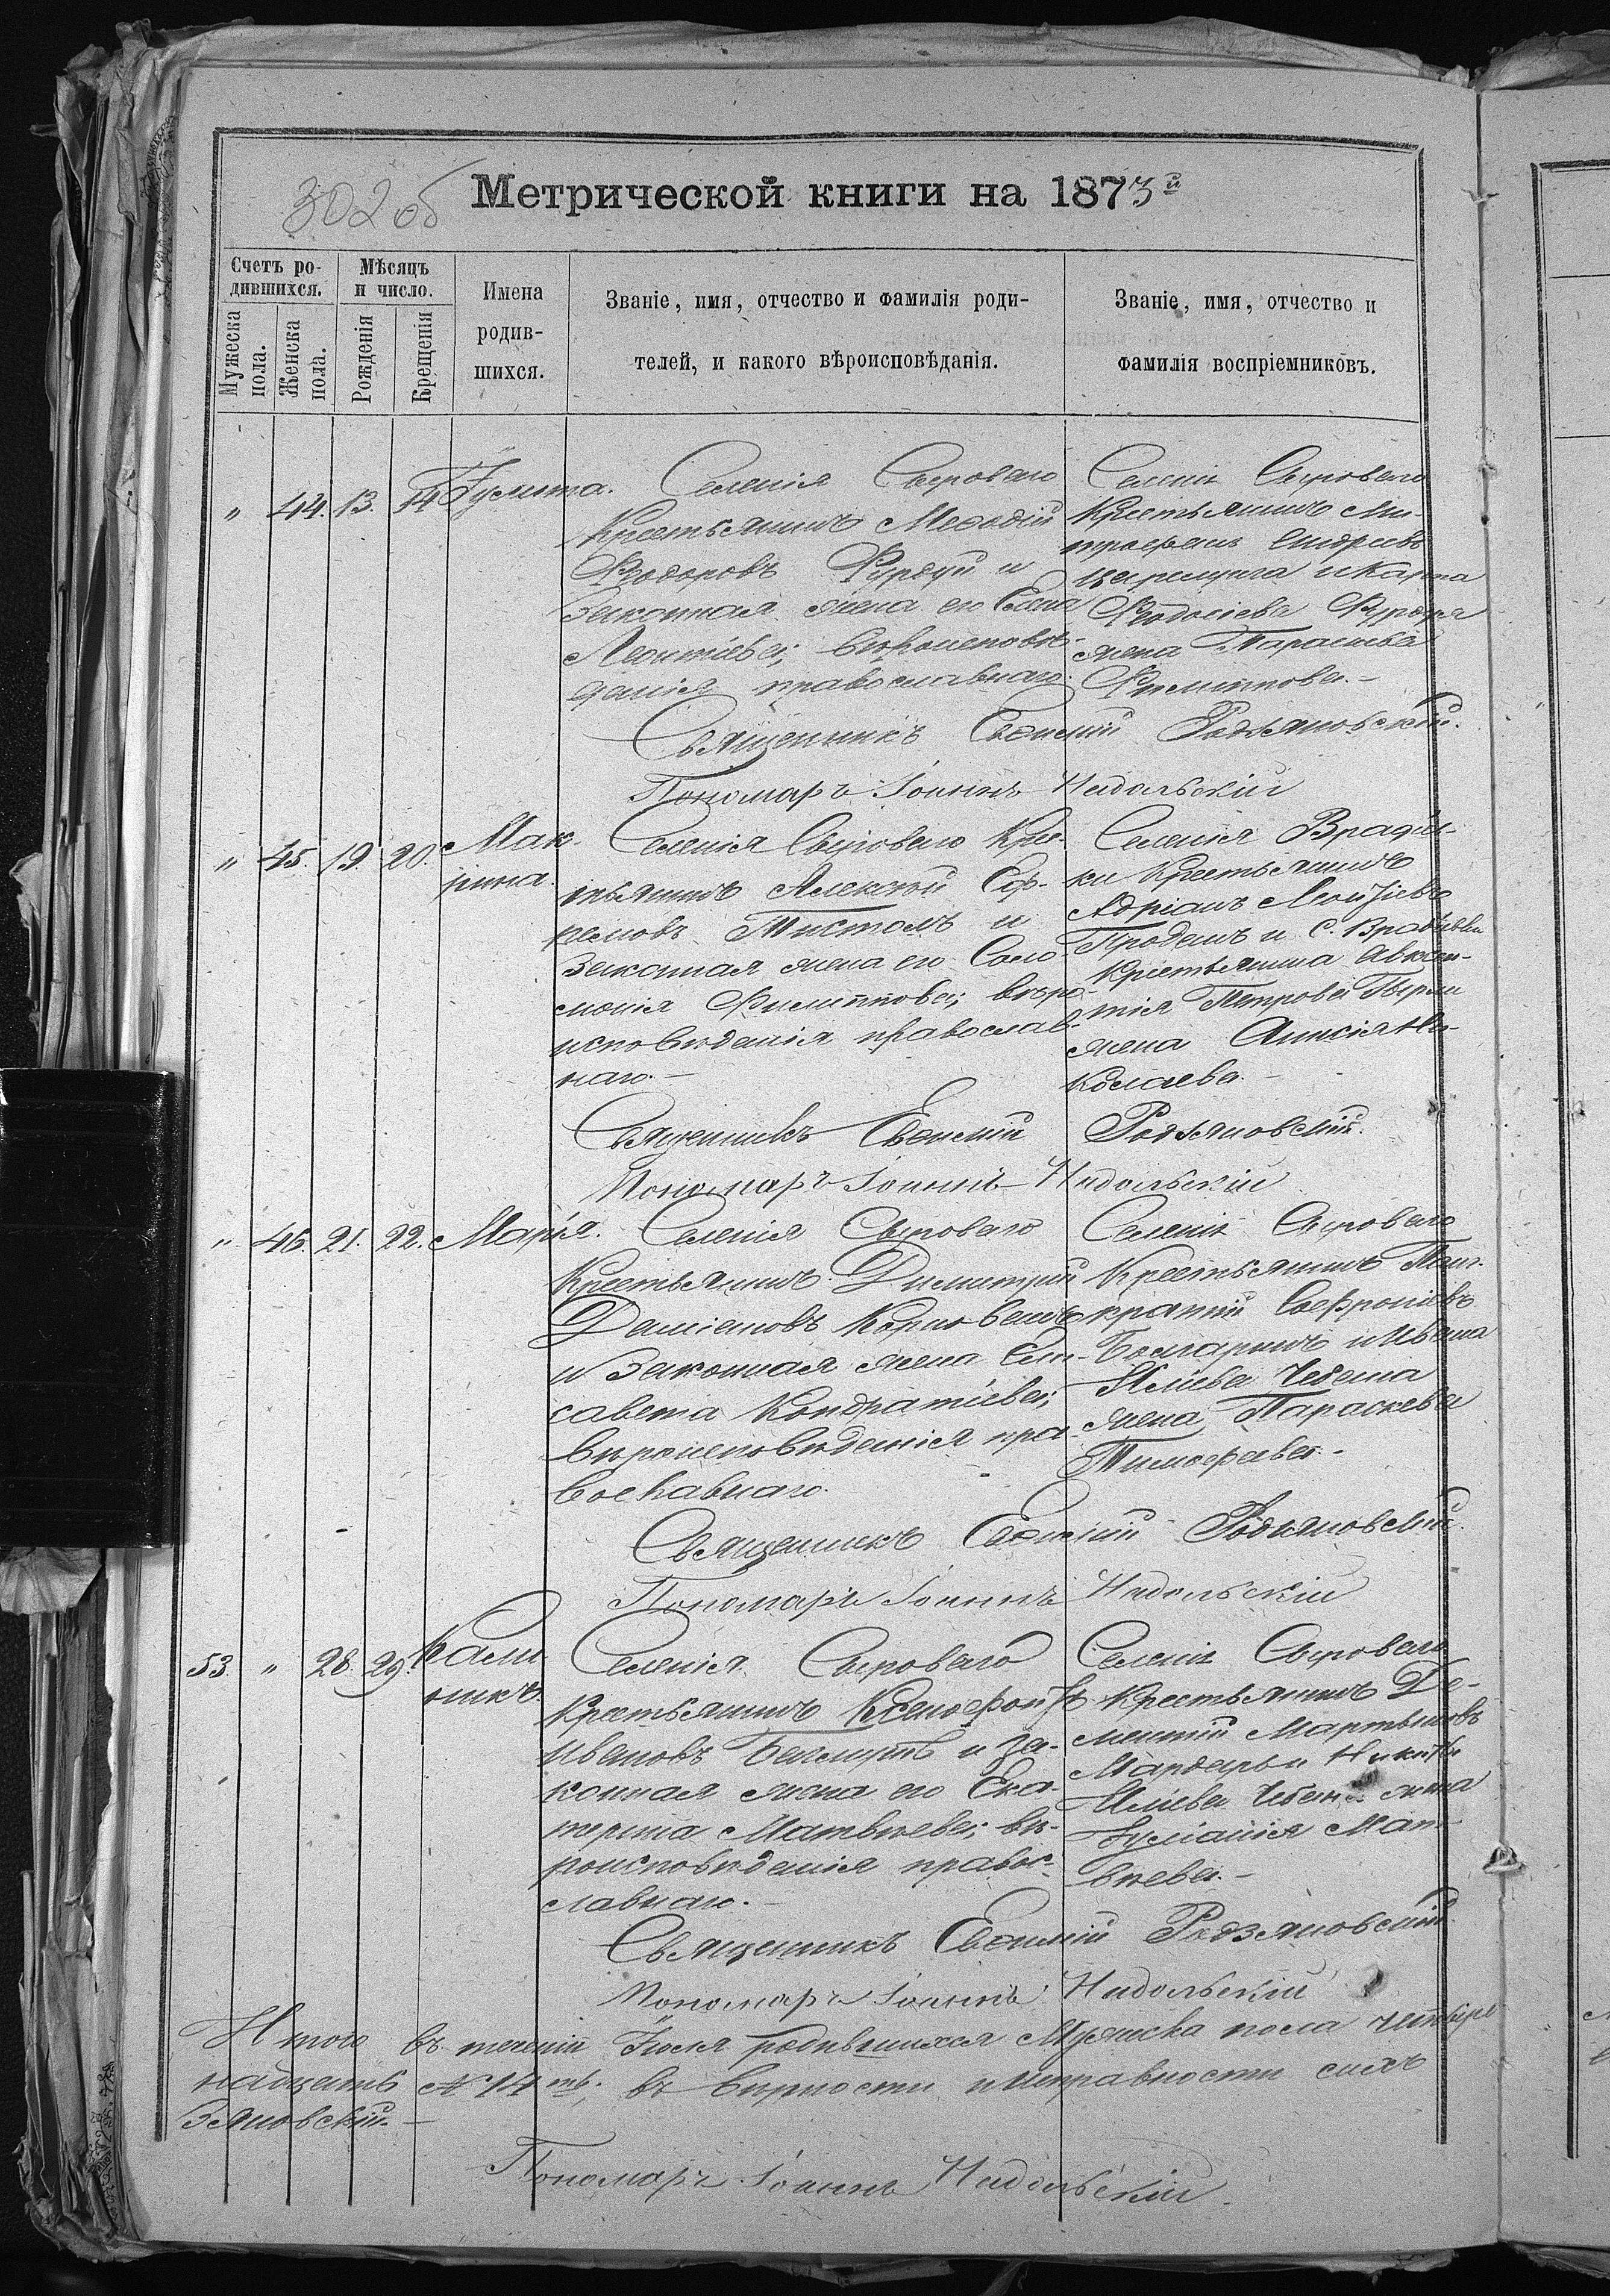 302 об
Метрической книги на 1873й
Счетъ ро-
дившихся.
Мѣсяцъ
и число.
Мужеска
пола.
Женска
пола.
Рожденія
Крещенія
Имена
родив-
шихся.
Званіе, имя, отчество и фамилія роди-
телей, и какого вѣроисповѣданія.
Званіе, имя, отчество и
фамилія воспріемниковъ.
" 44. 13. 14
Іулита.
Селенія Сыроваго
Крестьянинъ Меѳодій
Ѳеодоровъ и
Законная жена его Елена
Леонтіева; вѣроисповѣ-
данія православнаго.
Селенія Сыроваго
Крестьянинъ Ми-
трофанъ Андреевъ
жена Параскева
Филиппова.-
Священникъ Евѳимій Родзяновскій.
Пономарь Іоаннъ Надольскій
" 45. 19. 20.
Мак-
рина.
Селенія Сыроваго Кре-
стьянинъ Алексѣй Еф-
ремовъ и
Законная жена его Соло-
монія Филиппова; вѣро-
исповѣданія православ-
наго.-
Селенія Врадіев-
ки Крестьянинъ
Адріанъ Моисеевъ
Проданъ и С. Врадіевки
Крестьянина Авксен-
тія Петрова
жена Анисія Ни-
колаева.-
Священникъ Евѳимій Родзяновскій.
Пономарь Іоаннъ Надольскій
" 46. 21. 22.
Марія.
Селенія Сыроваго
Крестьянинъ Димитрій
Даміановъ
и Законная жена Ели-
савета Кондратіева;
вѣроисповѣданія пра-
вославнаго.
Селенія Сыроваго
Крестьянинъ Пан-
кратій Софроніевъ
Болгаринъ и Ивана
Иліева Чебана
жена Параскева
Тимофеева.-
Священникъ Евѳимій Родзяновскій.
Пономарь Іоаннъ Надольскій
53. " 28. 29.
Калли-
никъ.
Селенія Сыроваго
Крестьянинъ Ксенофонтъ
Ивановъ и за-
конная жена его Ека-
терина Матвѣева; вѣ-
роисповѣданія правос-
лавнаго.-
Селенія Сыроваго
Крестьянинъ Де-
ментій Мартыновъ
Мардарь и Никиты
Иліева Чебана жена
Іуліанія Мат-
вѣева.-
Священникъ Евѳимій Родзяновскій
Пономарь Іоаннъ Надольскій
Итого въ теченіи Іюля родившихся Мужеска пола четыре
надцать №14ть, въ вѣрности и исправности сихъ
зяновскій.-
Пономарь Іоаннъ Надольскій.